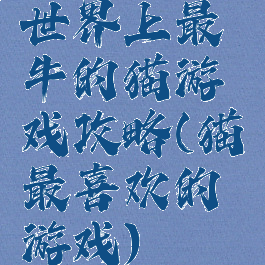 世界上最
牛的猫游
戏攻略(猫
最喜欢的
游戏)